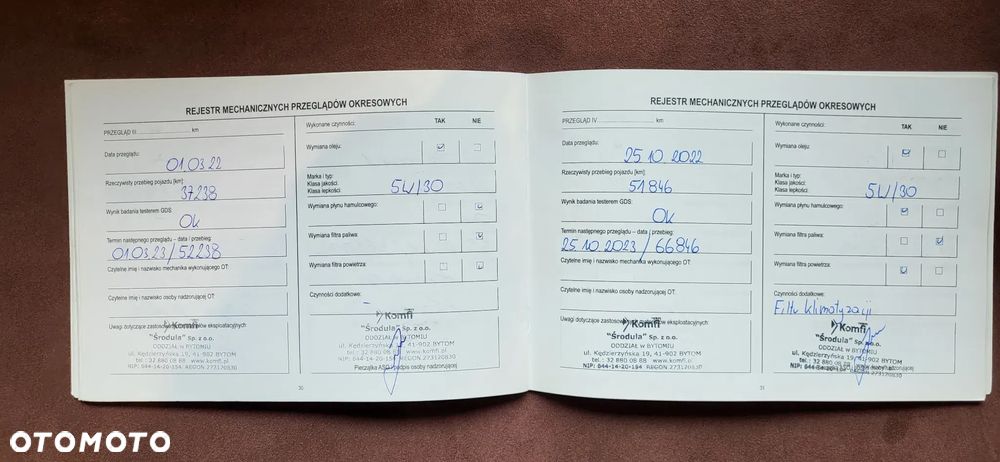 REJESTR MECHANICZNYCH PRZEGLĄDÓW OKRESOWYCH
PRZEGLĄD III km
Data przeglądu:
01.03.22
Rzeczywisty przebieg pojazdu [km]:
37238
Wynik badania testerem GDS:
Ok
Termin następnego przeglądu – data / przebieg:
01.03.23/52238
Czytelne imię i nazwisko mechanika wykonującego OT:
Czytelne imię i nazwisko osoby nadzorującej OT:
Uwagi dotyczące zastosowanych materiałów eksploatacyjnych
Komfi
"Środula" Sp. z o.o.
ODDZIAŁ w BYTOMIU
ul. Kędzierzyńska 19, 41-902 BYTOM
tel.: 32 880 08 88 www.komfi.pl
NIP: 644-14-20-194 REGON 273120830
Wykonane czynności: TAK NIE
Wymiana oleju:
Marka i typ:
Klasa jakości:
Klasa lepkości:
5W/30
Wymiana płynu hamulcowego:
Wymiana filtra paliwa:
Wymiana filtra powietrza:
Czynności dodatkowe:
–
Komfi
"Środula" Sp. z o.o.
ODDZIAŁ w BYTOMIU
ul. Kędzierzyńska 19, 41-902 BYTOM
tel.: 32 880 08 88 www.komfi.pl
NIP: 644-14-20-194 REGON 273120830
Pieczątka ASO i podpis osoby nadzorującej
30
REJESTR MECHANICZNYCH PRZEGLĄDÓW OKRESOWYCH
PRZEGLĄD IV km
Data przeglądu:
25.10.2022
Rzeczywisty przebieg pojazdu [km]:
51846
Wynik badania testerem GDS:
Ok
Termin następnego przeglądu – data / przebieg:
25.10.2023/66846
Czytelne imię i nazwisko mechanika wykonującego OT:
Czytelne imię i nazwisko osoby nadzorującej OT:
Uwagi dotyczące zastosowanych materiałów eksploatacyjnych
Komfi
"Środula" Sp. z o.o.
ODDZIAŁ w BYTOMIU
ul. Kędzierzyńska 19, 41-902 BYTOM
tel.: 32 880 08 88 www.komfi.pl
NIP: 644-14-20-194 REGON 273120830
Wykonane czynności: TAK NIE
Wymiana oleju:
Marka i typ:
Klasa jakości:
Klasa lepkości:
5W/30
Wymiana płynu hamulcowego:
Wymiana filtra paliwa:
Wymiana filtra powietrza:
Czynności dodatkowe:
Filtr klimatyzacji
Komfi
"Środula" Sp. z o.o.
ODDZIAŁ w BYTOMIU
ul. Kędzierzyńska 19, 41-902 BYTOM
tel.: 32 880 08 88 www.komfi.pl
NIP: 644-14-20-194 REGON 273120830
31
OTOMOTO